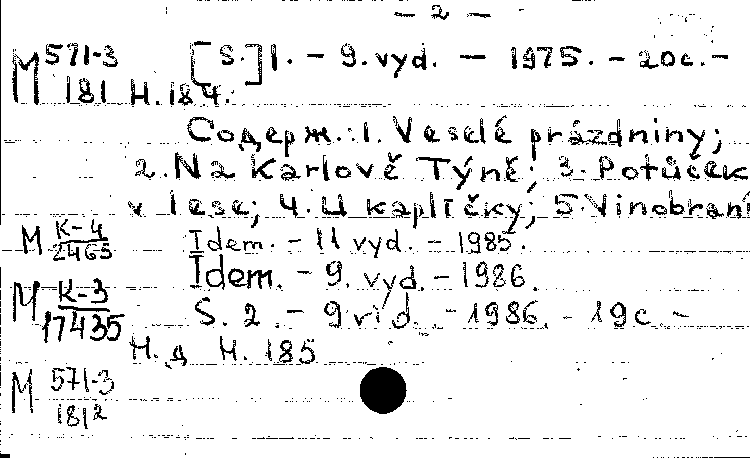 – 2 –
M 571-3 [S.] 1. – 9. vyd. – 1975. – 20 c. –
181 Н. 184.
Содерж.: 1. Veselé prázdniny;
2. Na Karlově Týně; 3. Potůček
v lese; 4. U kapličky; 5. Vinobraní
M К-4 Idem. – 11 vyd. – 1985.
2465
Idem. – 9. vyd. – 1986.
M К-3
17435 S. 2. – 9 vid. – 1986. – 19 c –
Н. д Н. 185
M 571-3
181 2